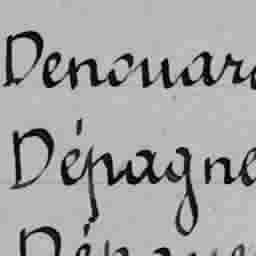 Denouar
Dépagne